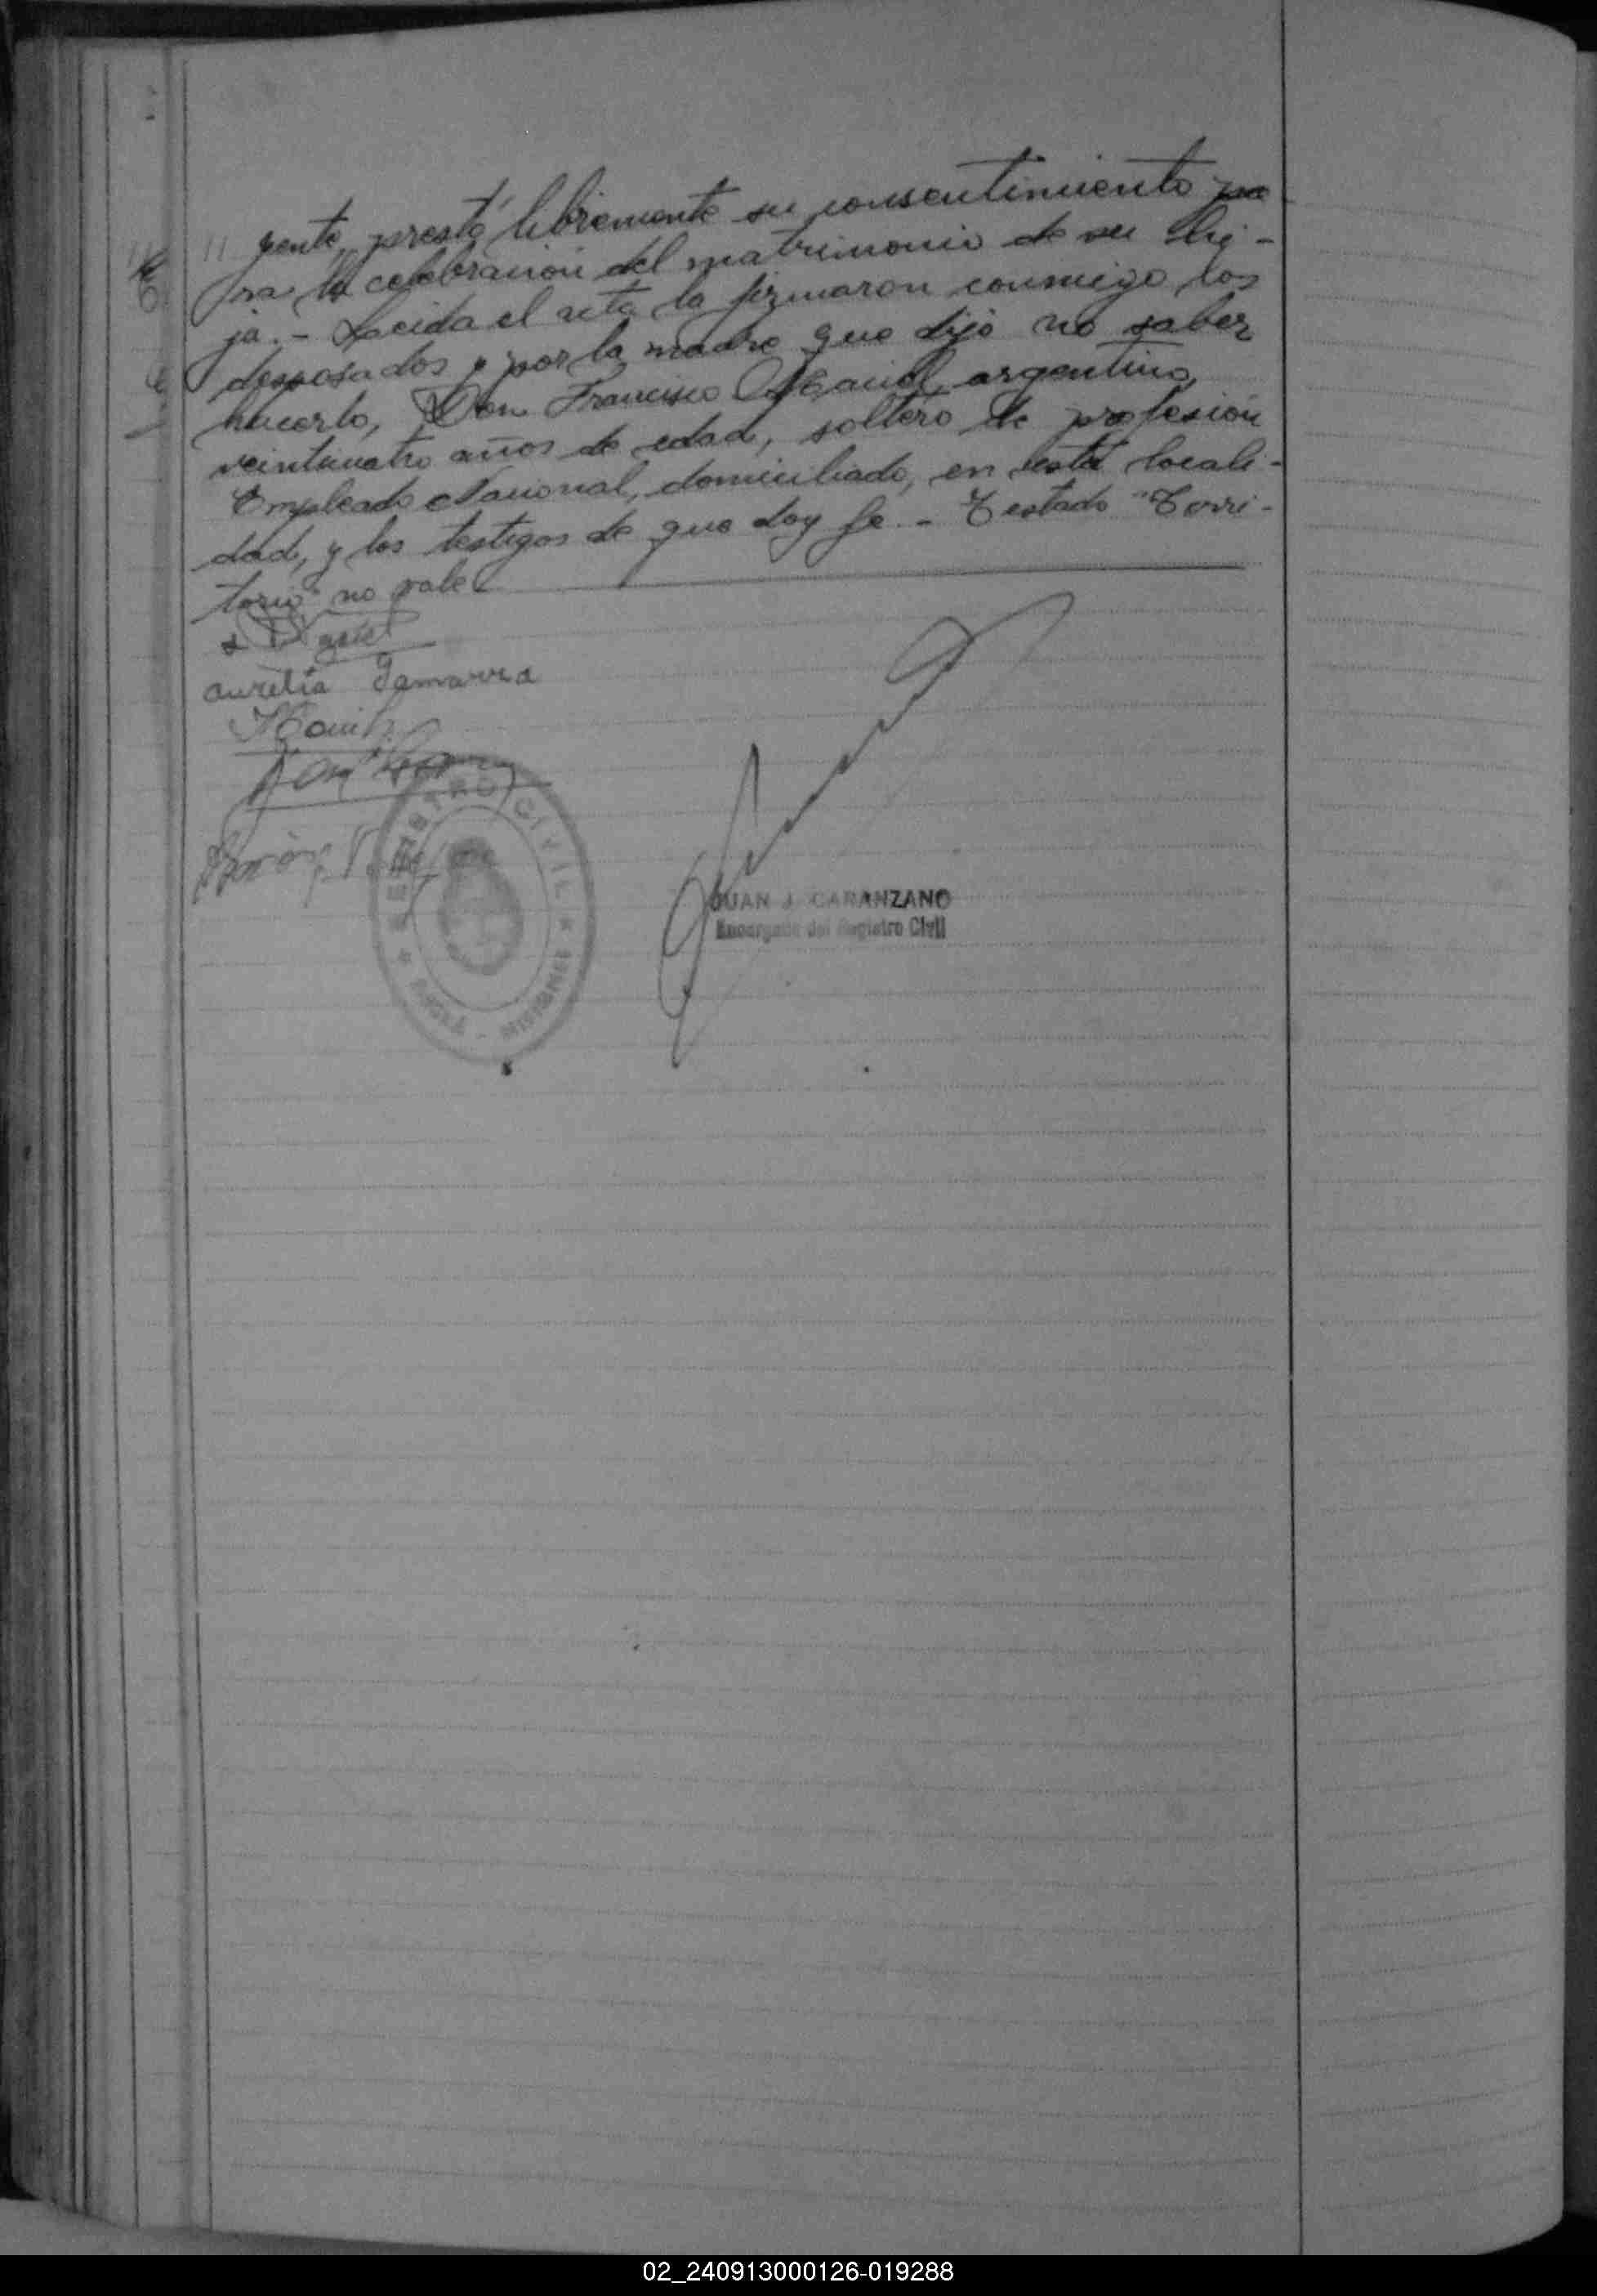 " gente, prestó libremente su consentimiento pa
ra la celebración del matrimonio de su hi-
ja.- Leida el acta la firmaron conmigo los
desposados y por la madre que dijo no saber
hacerlo, Don Francisco Maciel, argentino,
veinticuatro años de edad, soltero de profesión
Empleado Nacional, domiciliado, en esta locali-
dad, y los testigos de que doy fe.- Testado "Terri-
torio" no vale
Aurelia Gamarra
REGISTRO CIVIL
MISIONES
JUAN J. CARANZANO
Encargado del Registro Civil
02_240913000126-019288